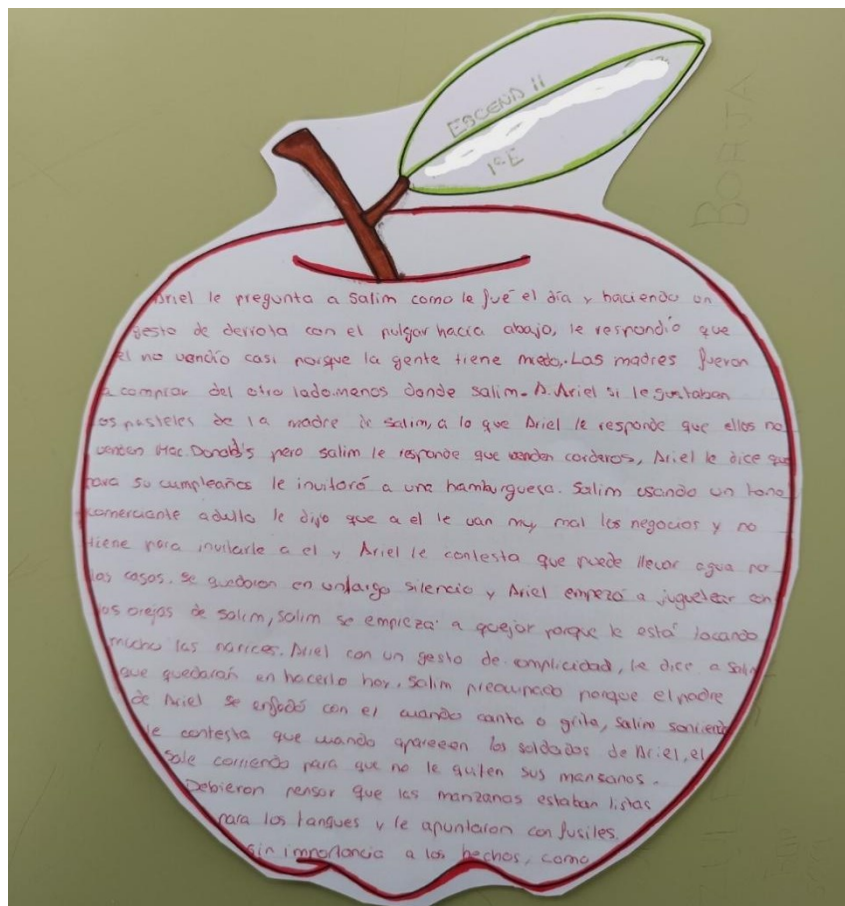 ESCENA 11
1ºE
BORJA
Ariel le pregunta a Salim como le fué el día y haciendo un
gesto de derrota con el pulgar hacía abajo, le respondío que
el no vendío casi porque la gente tiene miedo. Las madres fueron
a comprar del otro lado.menos donde salim. A Ariel si le gustaban
los pasteles de la madre de salim, a lo que Ariel le responde que ellos no
venden Mac.Donald's pero salim le responde que venden corderos, Ariel le dice que
para su cumpleaños le invitará a una hamburguesa. Salim usando un tono
comerciante adulto le dijo que a el le van muy mal los negocios y no
tiene para invitarle a el y Ariel le contesta que puede llevar agua por
las casas. se quedaron en unlargo silencio y Ariel empezó a juguetear con
las orejas de salim, salim se empieza a quejar porque le está tocando
mucho las narices. Ariel con un gesto de complicidad, le dice a Salim
que quedarán en hacerlo hoy. Salim preocupado porque el padre
de Ariel se enfadó con el cuando canta o grita, Salim sonriendo
le contesta que cuando aparecen los soldados de Ariel, el
sale corriendo para que no le quiten sus mansanas.
Debieron pensar que las manzanas estaban listas
para los tanques y le apuntaron con fusiles.
sin importancia a los hechos, como